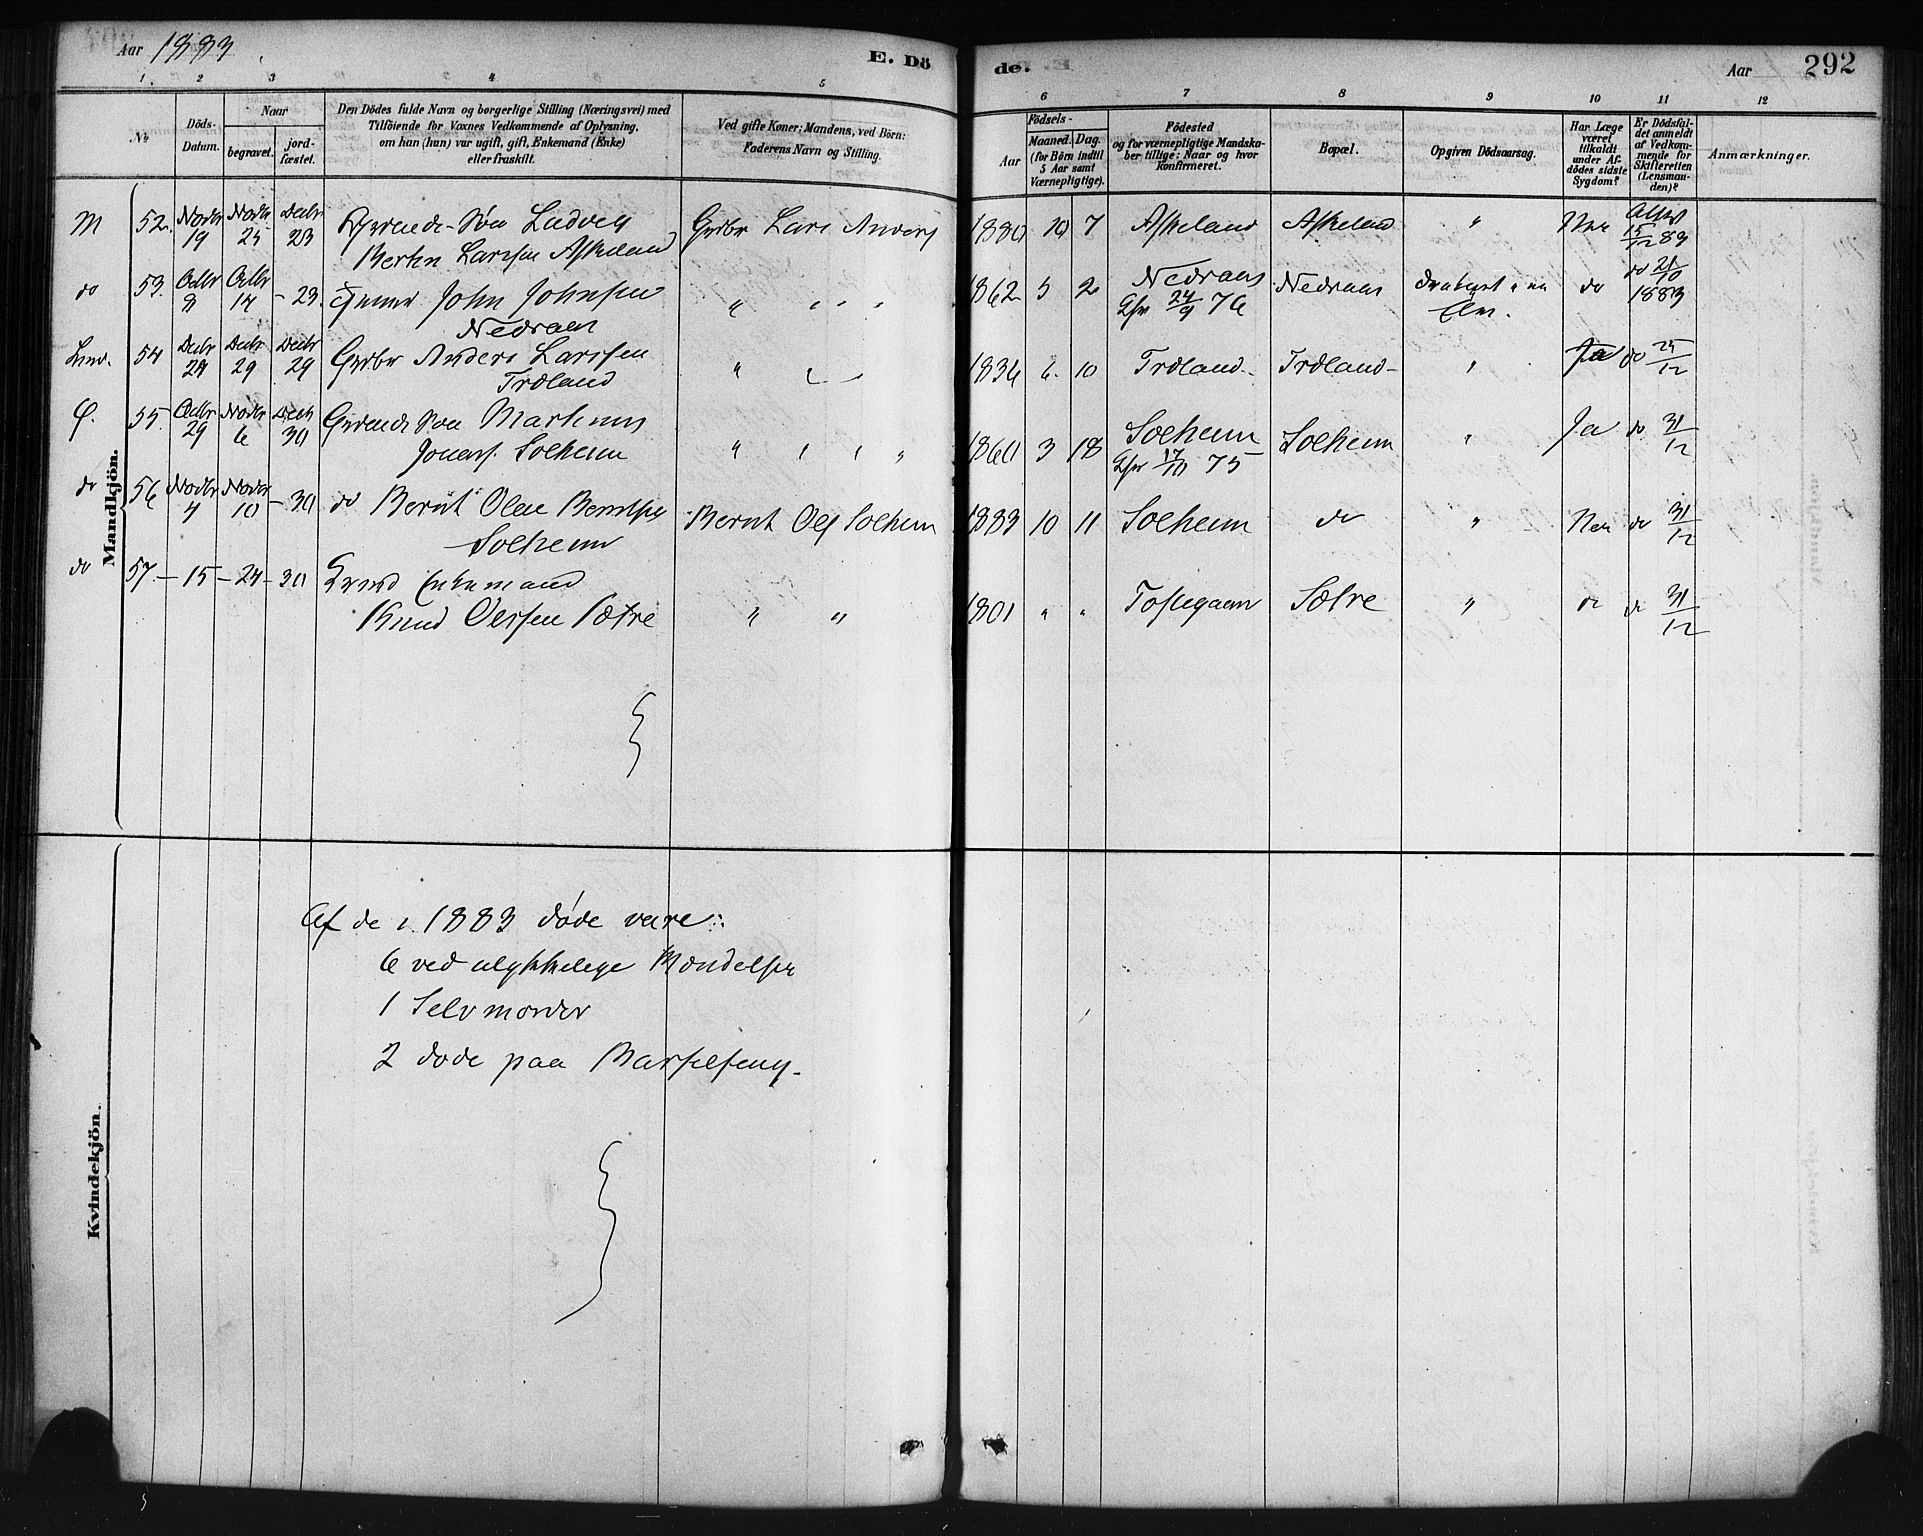 Aar 1883
E. Dö
de.
Aar
292
1. 2 3 4 5
6 7 8 9 10 11 12
No
Döds-
Datum.
Naar
begravet.
jord-
fæstet.
Den Dödes fulde Navn og borgerlige Stilling (Næringsvei) med
Tilföiende for Voxnes Vedkommende af Oplysning,
om han (hun) var ugift, gift, Enkemand (Enke)
eller fraskilt.
Ved gifte Koner: Mandens, ved Börn:
Faderens Navn og Stilling.
Födsels-
Aar
Maaned.
Dag.
(for Börn indtil
5 Aar samt
Værnepligtige).
Födested
og for værnepligtige Mandska-
ber tillige: Naar og hvor
Konfirmeret.
Bopæl.
Opgiven Dödsaarsag.
Har Læge
været
tilkaldt
under Af-
dödes sidste
Sygdom?
Er Dödsfal-
det anmeldt
af Vedkom-
mende for
Skifteretten
(Lensman-
den)?
Anmærkninger.
Mandkjön.
M 52. Novbr 19 Novbr 25 Decbr 23 Søn Ludvig
Larssen Askeland
Grdbr Lars Anders 1880 10 7 Askeland Askeland " Nei 15/12 83
do 53. Octbr 8 Octbr 14 - 23 John Johnsen
Nedraas
" 1862 5 2 Nedraas 24/9 76 Nedraas Elv. do do 21/10 1883
54 Decbr 29 Decbr 29 Grdbr Anders Larssen
Træland
" 1836 6 10 Træland Træland " Ja do 25/12
55. Octbr 29 Novbr 6 Decbr 30 Søn Markus
Solheim
" 1860 3 18 Solheim 17/10 75 Solheim " Ja do 31/12
do 56 Novbr 4 Novbr 10 - 30 do Bernt Olai Berntsen
Solheim
Bernt Ols Solheim 1883 10 11 Solheim do " Nei do 31/12
do 57 - 15 - 24 - 30 Enkemand
Knud Olssen Sætre
" " 1801 " " Sætre " do do 31/12
Kvindekjön.
Af de i 1883 døde vare:
6 ved ulykkelige Hændelser
1 Selvmorder
2 døde paa Barselseng.